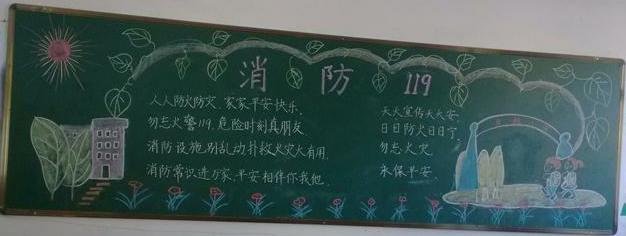 消防 119
人人防火防灾,家家平安快乐.
勿忘火警119,危险时刻真朋友
消防设施别乱动扑救火灾大有用.
消防常识进万家,平安相伴你我他.
天天宣传天天安
日日防火日日宁
勿忘火灾
永保平安